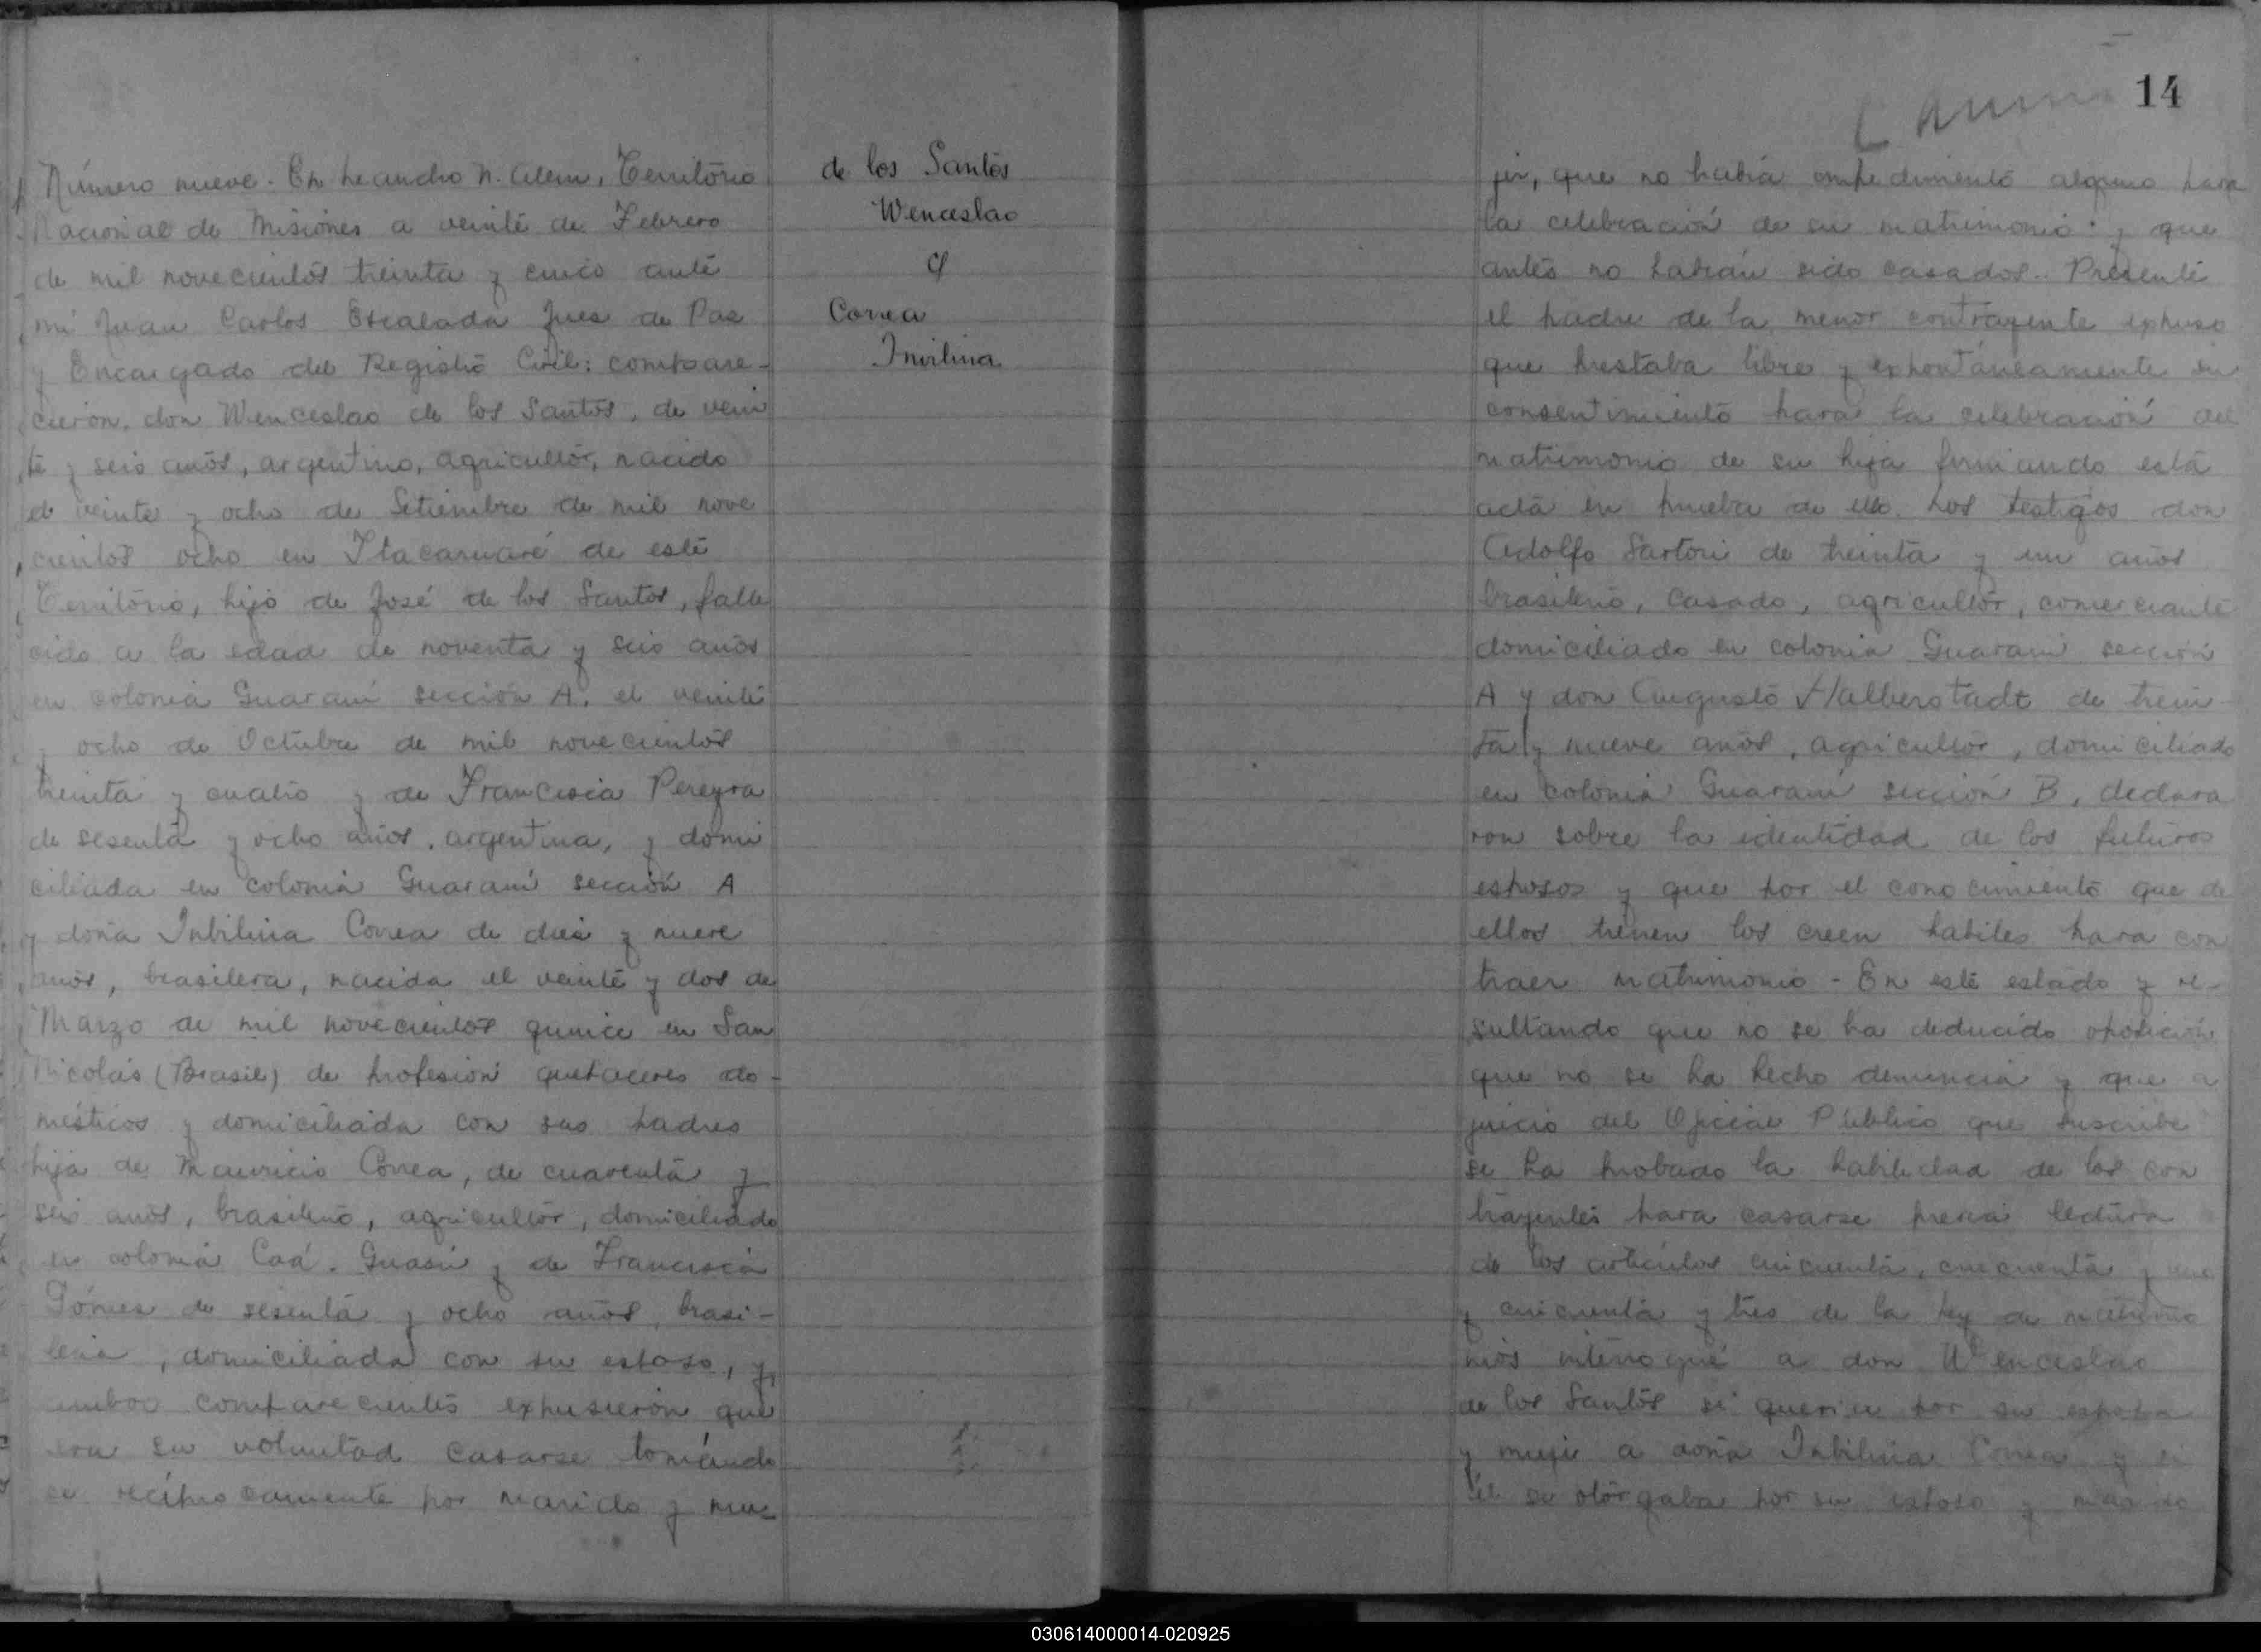 Número nueve. En Leandro N. Alem, Território
Nacional de Misiones a veinte de Febrero
de mil novecientos treinta y cinco ante
mi Juan Carlos Escalada Juez de Paz
y Encargado del Registro Civil: compare-
cieron, don Wenceslao de los Santos, de vein
te y seis años, argentino, agricultor, nacido
el veinte y ocho de Setiembre de mil nove
cientos ocho en Itacaruaré de este
Território, hijo de José de los Santos, falle
cido a la edad de noventa y seis años
en colonia Guaraní sección A, el veinte
y ocho de Octubre de mil novecientos
treinta y cuatro y de Francisca Pereyra
de sesenta y ocho años, argentina, y domi
ciliada en colonia Guaraní sección A
y doña Inbilina Correa de diez y nueve
años, brasilera, nacida el veinte y dos de
Marzo de mil novecientos quince en San
Nicolás (Brasil) de profesión quehaceres do-
mésticos y domiciliada con sus padres
hija de Mauricio Correa, de cuarenta y
seis años, brasileño, agricultor, domiciliado
en colonia Caá. Guasú y de Francisca
Gómez de sesenta y ocho años, brasi-
leña, domiciliada con su esposo, y
ambos comparecientes expusieron que
era su voluntad casarse tomándo
se recíprocamente por marido y mu-
de los Santos
Wenceslao
c/
Correa
Invilina
14
jer, que no había impedimento alguno para
la celebración de su matrimonio y que
antes no habían sido casados. Presente
el padre de la menor contrayente expuso
que prestaba libre y expontáneamente su
consentimiento para la celebración del
matrimonio de su hija firmando esta
acta en prueba de ello. Los testigos don
Adolfo Sartori de treinta y un años
brasileño, casado, agricultor, comerciante
domiciliado en colonia Guaraní sección
A y don Augusto Halberstadt de trein-
ta y nueve años, agricultor, domiciliado
en colonia Guaraní sección B, declara
ron sobre la identidad de los futuros
esposos y que por el conocimiento que de
ellos tienen los creen habiles para con
traer matrimonio - En este estado y re-
sultando que no se ha deducido oposición
que no se ha hecho denuncia y que a
juicio del Oficial Público que suscribe
se ha probado la habilidad de los con
trayentes para casarse previa lectura
de los artículos cincuenta, cincuenta y uno
y cincuenta y tres de la ley de matrimo
nios interrogué a don Wenceslao
de los Santos si queria por su esposa
y mujer a doña Inbilina Correa y si
él se otorgaba por su esposo y marido